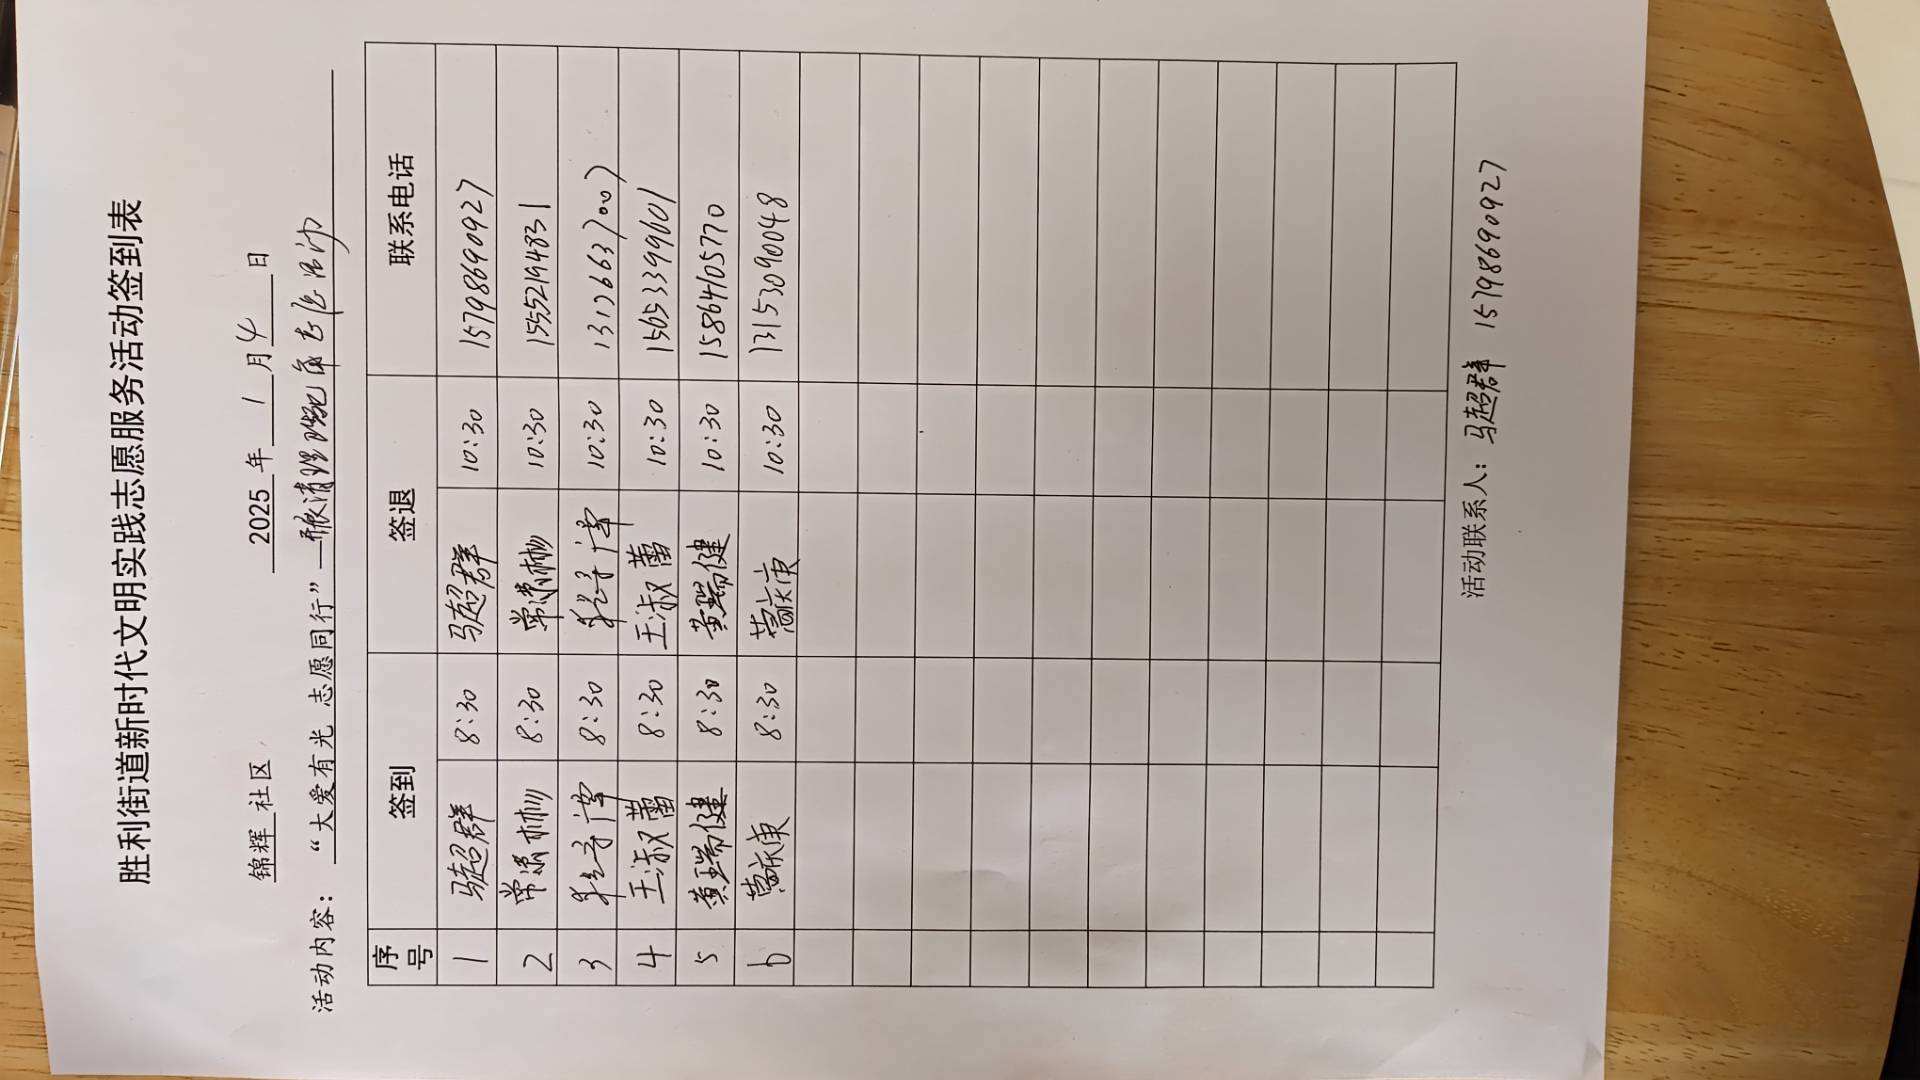 胜利街道新时代文明实践志愿服务活动签到表
锦辉 社区 2025 年 1 月 4 日
活动内容： “大爱有光 志愿同行”
序号 签到 签退 联系电话
1 马超群 8:30 马超群 10:30 15798690927
2 8:30 10:30 15552194831
3 8:30 10:30
4 王淑蕾 8:30 王淑蕾 10:30 15653399601
5 黄瑞健 8:30 黄瑞健 10:30 15864105770
6 8:30 10:30 13153090048
活动联系人： 马超群 15798690927